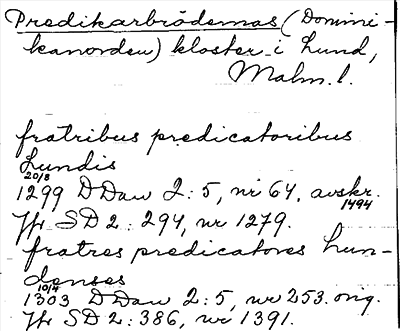 Predikarbrödernas (Domini-
kanorden) kloster i Lund,
Malm. l.
fratribus predicatoribus
Lundis
20/8
1299 DDan 2:5, nr 64, avskr.
1494
Jfr SD 2: 294, nr 1279.
fratres predicatores Lun-
denses
10/4
1303 DDan 2:5, nr 253. orig.
Jfr SD 2: 386, nr 1391.